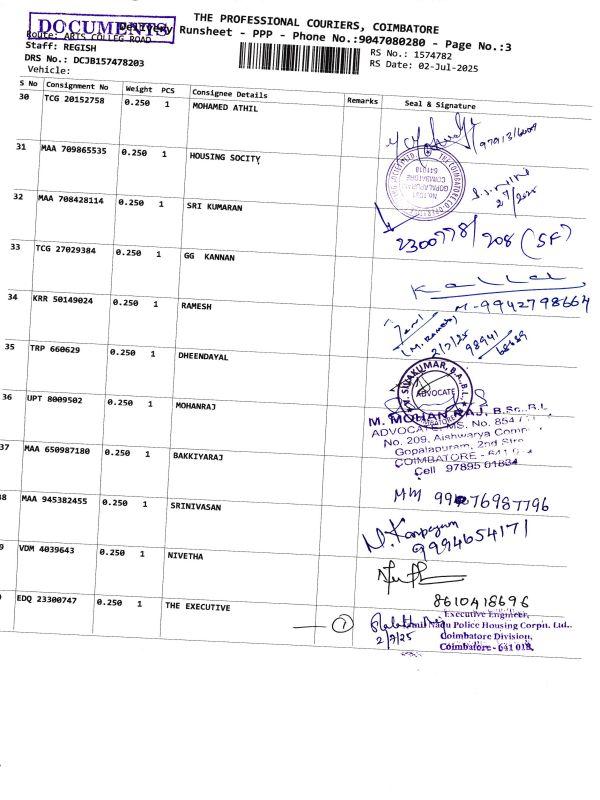 THE PROFESSIONAL COURIERS, COIMBATORE
DOCUMENTS
Delivery Runsheet - PPP - Phone No.:9047080280 - Page No.:3
Route: ARTS COLLEG ROAD
Staff: REGISH
RS No.: 1574782
DRS No.: DCJB157478203
RS Date: 02-Jul-2025
Vehicle:
S No Consignment No Weight PCS Consignee Details Remarks Seal & Signature
30 TCG 20152758 0.250 1 MOHAMED ATHIL
31 MAA 709865535 0.250 1 HOUSING SOCITY
GOPALAPURAM
COIMBATORE
641018
2/7/2025
32 MAA 708428114 0.250 1 SRI KUMARAN
2300778/208 (SF)
33 TCG 27029384 0.250 1 GG KANNAN
M-9942798664
34 KRR 50149024 0.250 1 RAMESH
(M. Ramesh)
2/7/25 98941
35 TRP 660629 0.250 1 DHEENDAYAL
SIVAKUMAR, B.A., B.L.
ADVOCATE
COIMBATORE
36 UPT 8009502 0.250 1 MOHANRAJ
M. MOHAN RAJ, B.Sc., B.L
ADVOCATE, MS. No. 854
No. 209, Aishwarya
Gopalapuram, 2nd
COIMBATORE - 641
Cell 97895 01834
37 MAA 650987180 0.250 1 BAKKIYARAJ
38 MAA 945382455 0.250 1 SRINIVASAN
9994654171
9 VDM 4039643 0.250 1 NIVETHA
8610418696
EDQ 23300747 0.250 1 THE EXECUTIVE
1
2/7/25
Executive Engineer,
Tamil Nadu Police Housing Corpn. Ltd..
Coimbatore Division,
Coimbatore - 641 018.